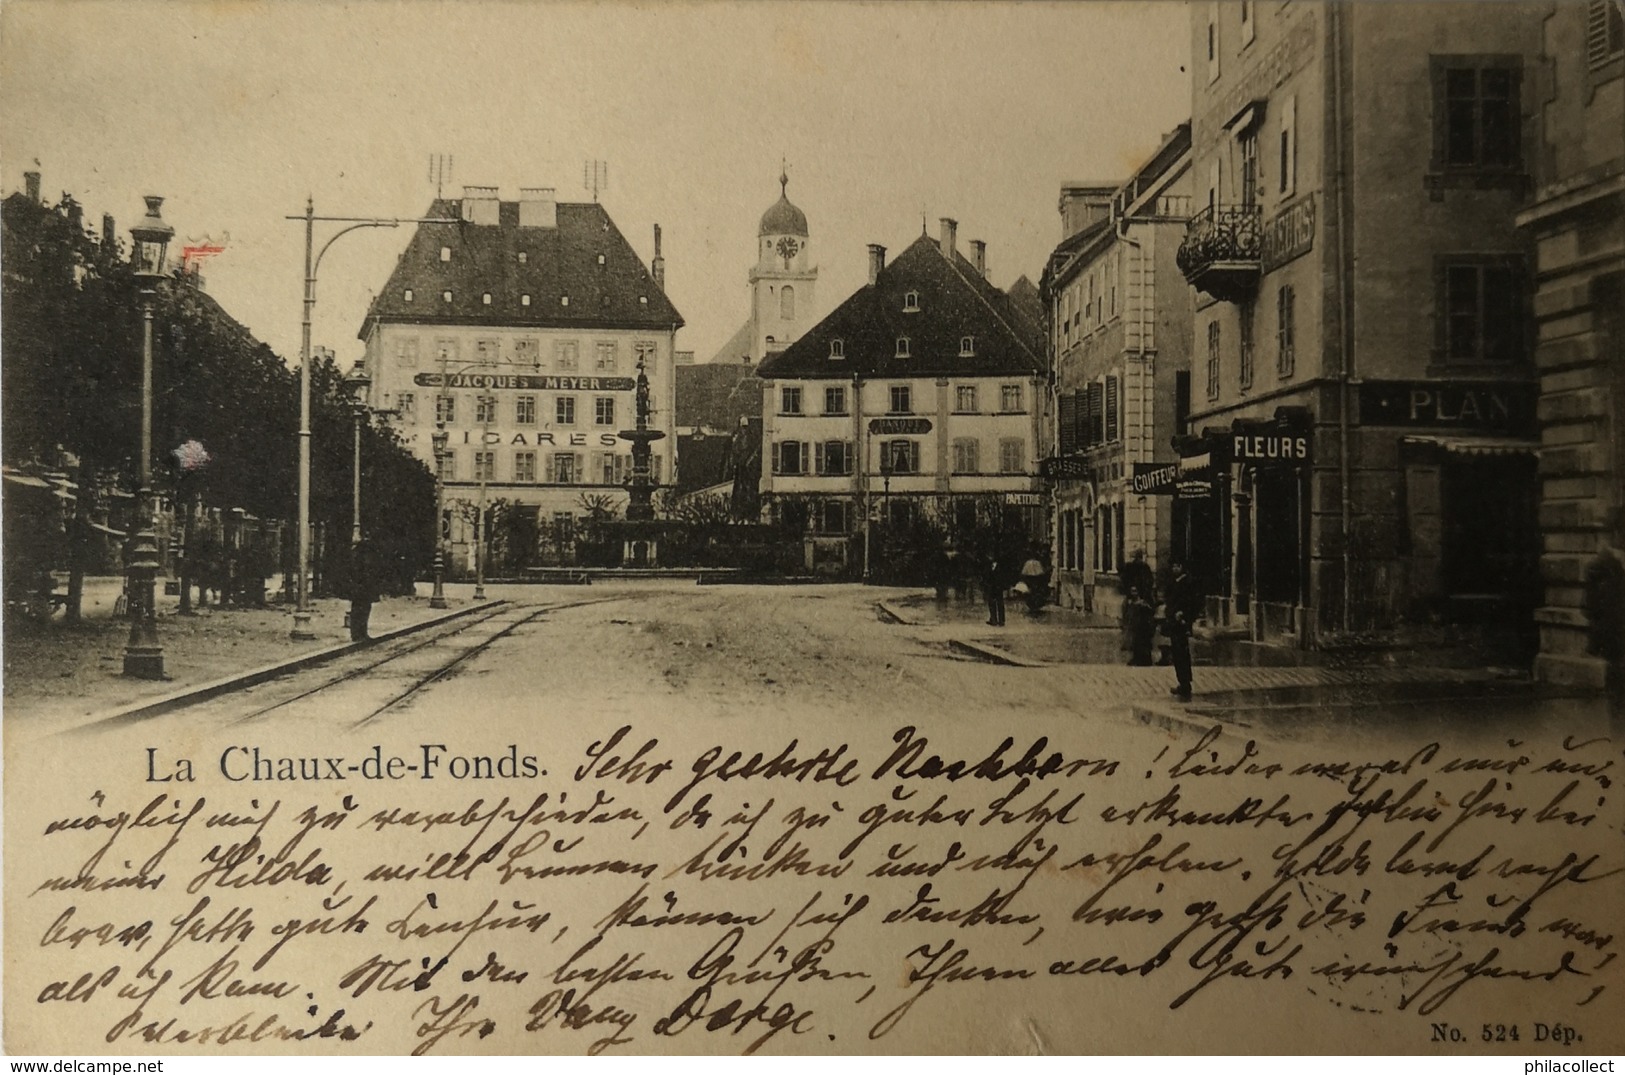 JACQUES MEYER
CIGARES
PAPETERIE
BRASSERIE
COIFFEUR
FLEURS
FLEURS
PLAN
La Chaux-de-Fonds. Sehr geehrte Nachbarn! Leider war es mir un-
möglich mich zu verabschieden, da ich zu guter Letzt erkrankte. Ich bin hier bei
meiner Hilda, will Brunnen trinken und mich erholen. Hilda lernt recht
brav, hatte gute Censur, können sich denken, wie groß die Freude war,
als ich kam. Mit den besten Grüßen, Ihnen alles Gute wünschend,
verbleibe Ihr
No. 524 Dép.
philacollect